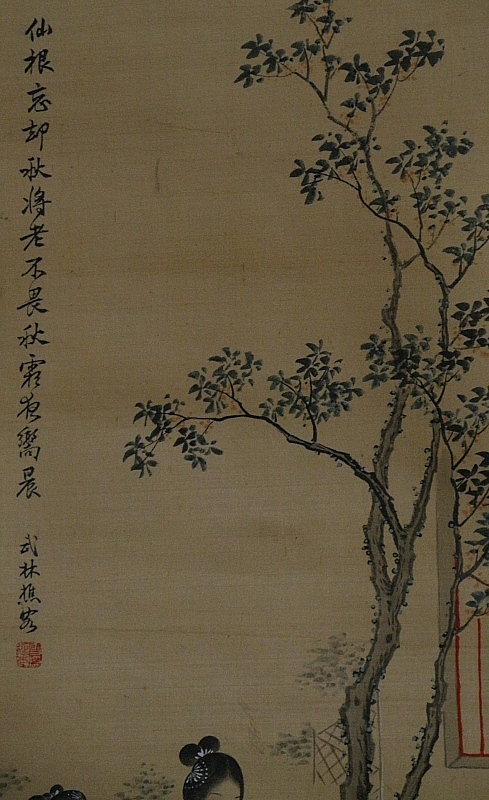 仙根忘却秋将老不畏秋霜夜嚮晨
武林樵客